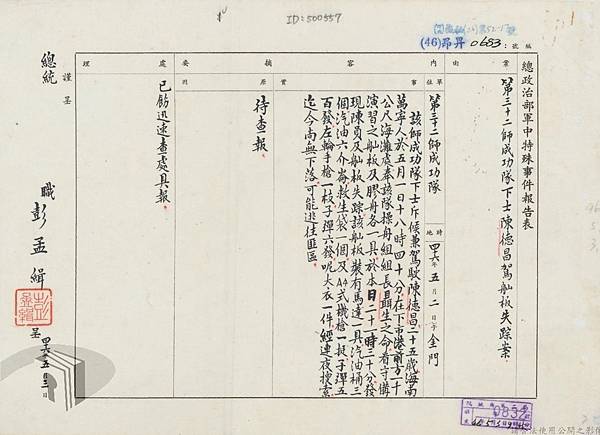 ID:500557
(46)昂昇0683
編號:
總政治部軍中特殊事件報告表
案由
第三十二師成功隊下士陳德昌駕舢板失踪案
單位
第三十二師成功隊
時地
四六年五月二日下午金門
內容摘要
事實
該師成功隊下士斥候兼駕駛陳德昌二十五歲海南
萬寧人於五月一日十八時四十分在下市港前方一千
公尺海灘處奉該隊操舟組組長聶生之命看守備
演習之舢板及膠舟各一具於本日二十一時三十分發
現陳員及舢板失踪該舢板裝有馬達一具汽油桶三
個汽油六介崙救生袋一個及A4式機槍一挺子彈五
百發左輪手槍一枝子彈六發呢大衣一件經連夜搜索
迄今尚無下落可能逃往匪區
原因
待查報
處理
已飭迅速查處具報
謹呈
總統
職彭孟緝
呈
四六、五、三
0852